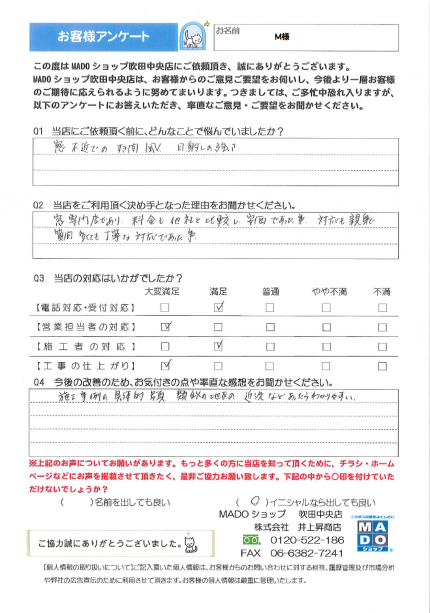 お客様アンケート
お名前
M様
この度はMADOショップ吹田中央店にご依頼頂き、誠にありがとうございます。
MADOショップ吹田中央店は、お客様からのご意見ご要望をお伺いし、今後より一層お客様
のご期待に応えられるように努めてまいります。つきましては、ご多忙中恐れ入りますが、
以下のアンケートにお答えいただき、率直なご意見・ご要望をお聞かせください。
Q1 当店にご依頼頂く前に、どんなことで悩んでいましたか?
窓 付近での すき間風、日射しの強さ
Q2 当店をご利用頂く決め手となった理由をお聞かせください。
窓専門店であり、料金も他社と比較し、安価であった事 対応も親切
質問 多くても 丁寧な 対応であった 事
Q3 当店の対応はいかがでしたか?
大変満足 満足 普通 やや不満 不満
【電話対応・受付対応】 □ ☑ □ □ □
【営業担当者の対応】 ☑ □ □ □ □
【施工者の対応】 □ ☑ □ □ □
【工事の仕上がり】 ☑ □ □ □ □
Q4 今後の改善のため、お気付きの点や率直な感想をお聞かせください。
施工事例の 具体的 写真 などあったらわかりやすい。
※上記のお声についてお願いがあります。もっと多くの方に当店を知って頂くために、チラシ・ホーム
ページなどにお声を掲載させて頂きたく、是非ご協力お願い致します。下記の中から〇印を付けていた
だけないでしょうか?
( )名前を出しても良い (〇)イニシャルなら出しても良い
MADOショップ 吹田中央店
株式会社 井上昇商店
0120-522-186
FAX 06-6382-7241
MADO
ショップ
ご協力誠にありがとうございました。
【個人情報の取り扱いについて】ご記入置いた個人情報は、お客様からのお問い合わせに対する回答、履歴管理及び市場分析
や弊社の広告宣伝のために利用させて頂きます。お客様の個人情報は厳重に管理いたします。